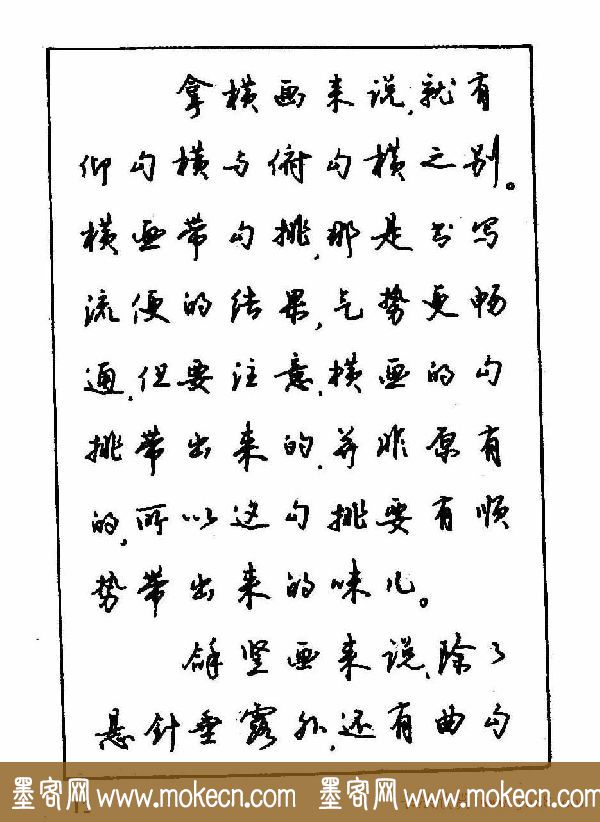 拿横画来说,就有
仰勾横与俯勾横之别。
横画带勾挑,那是书写
流便的结果,气势更畅
通,但要注意,横画的勾
挑带出来的,并非原有
的,所以这勾挑要有顺
势带出来的味儿。
竖画来说,除了
悬针垂露外,还有曲勾
墨客网 www.mokecn.com 墨客网 www.mokecn.com